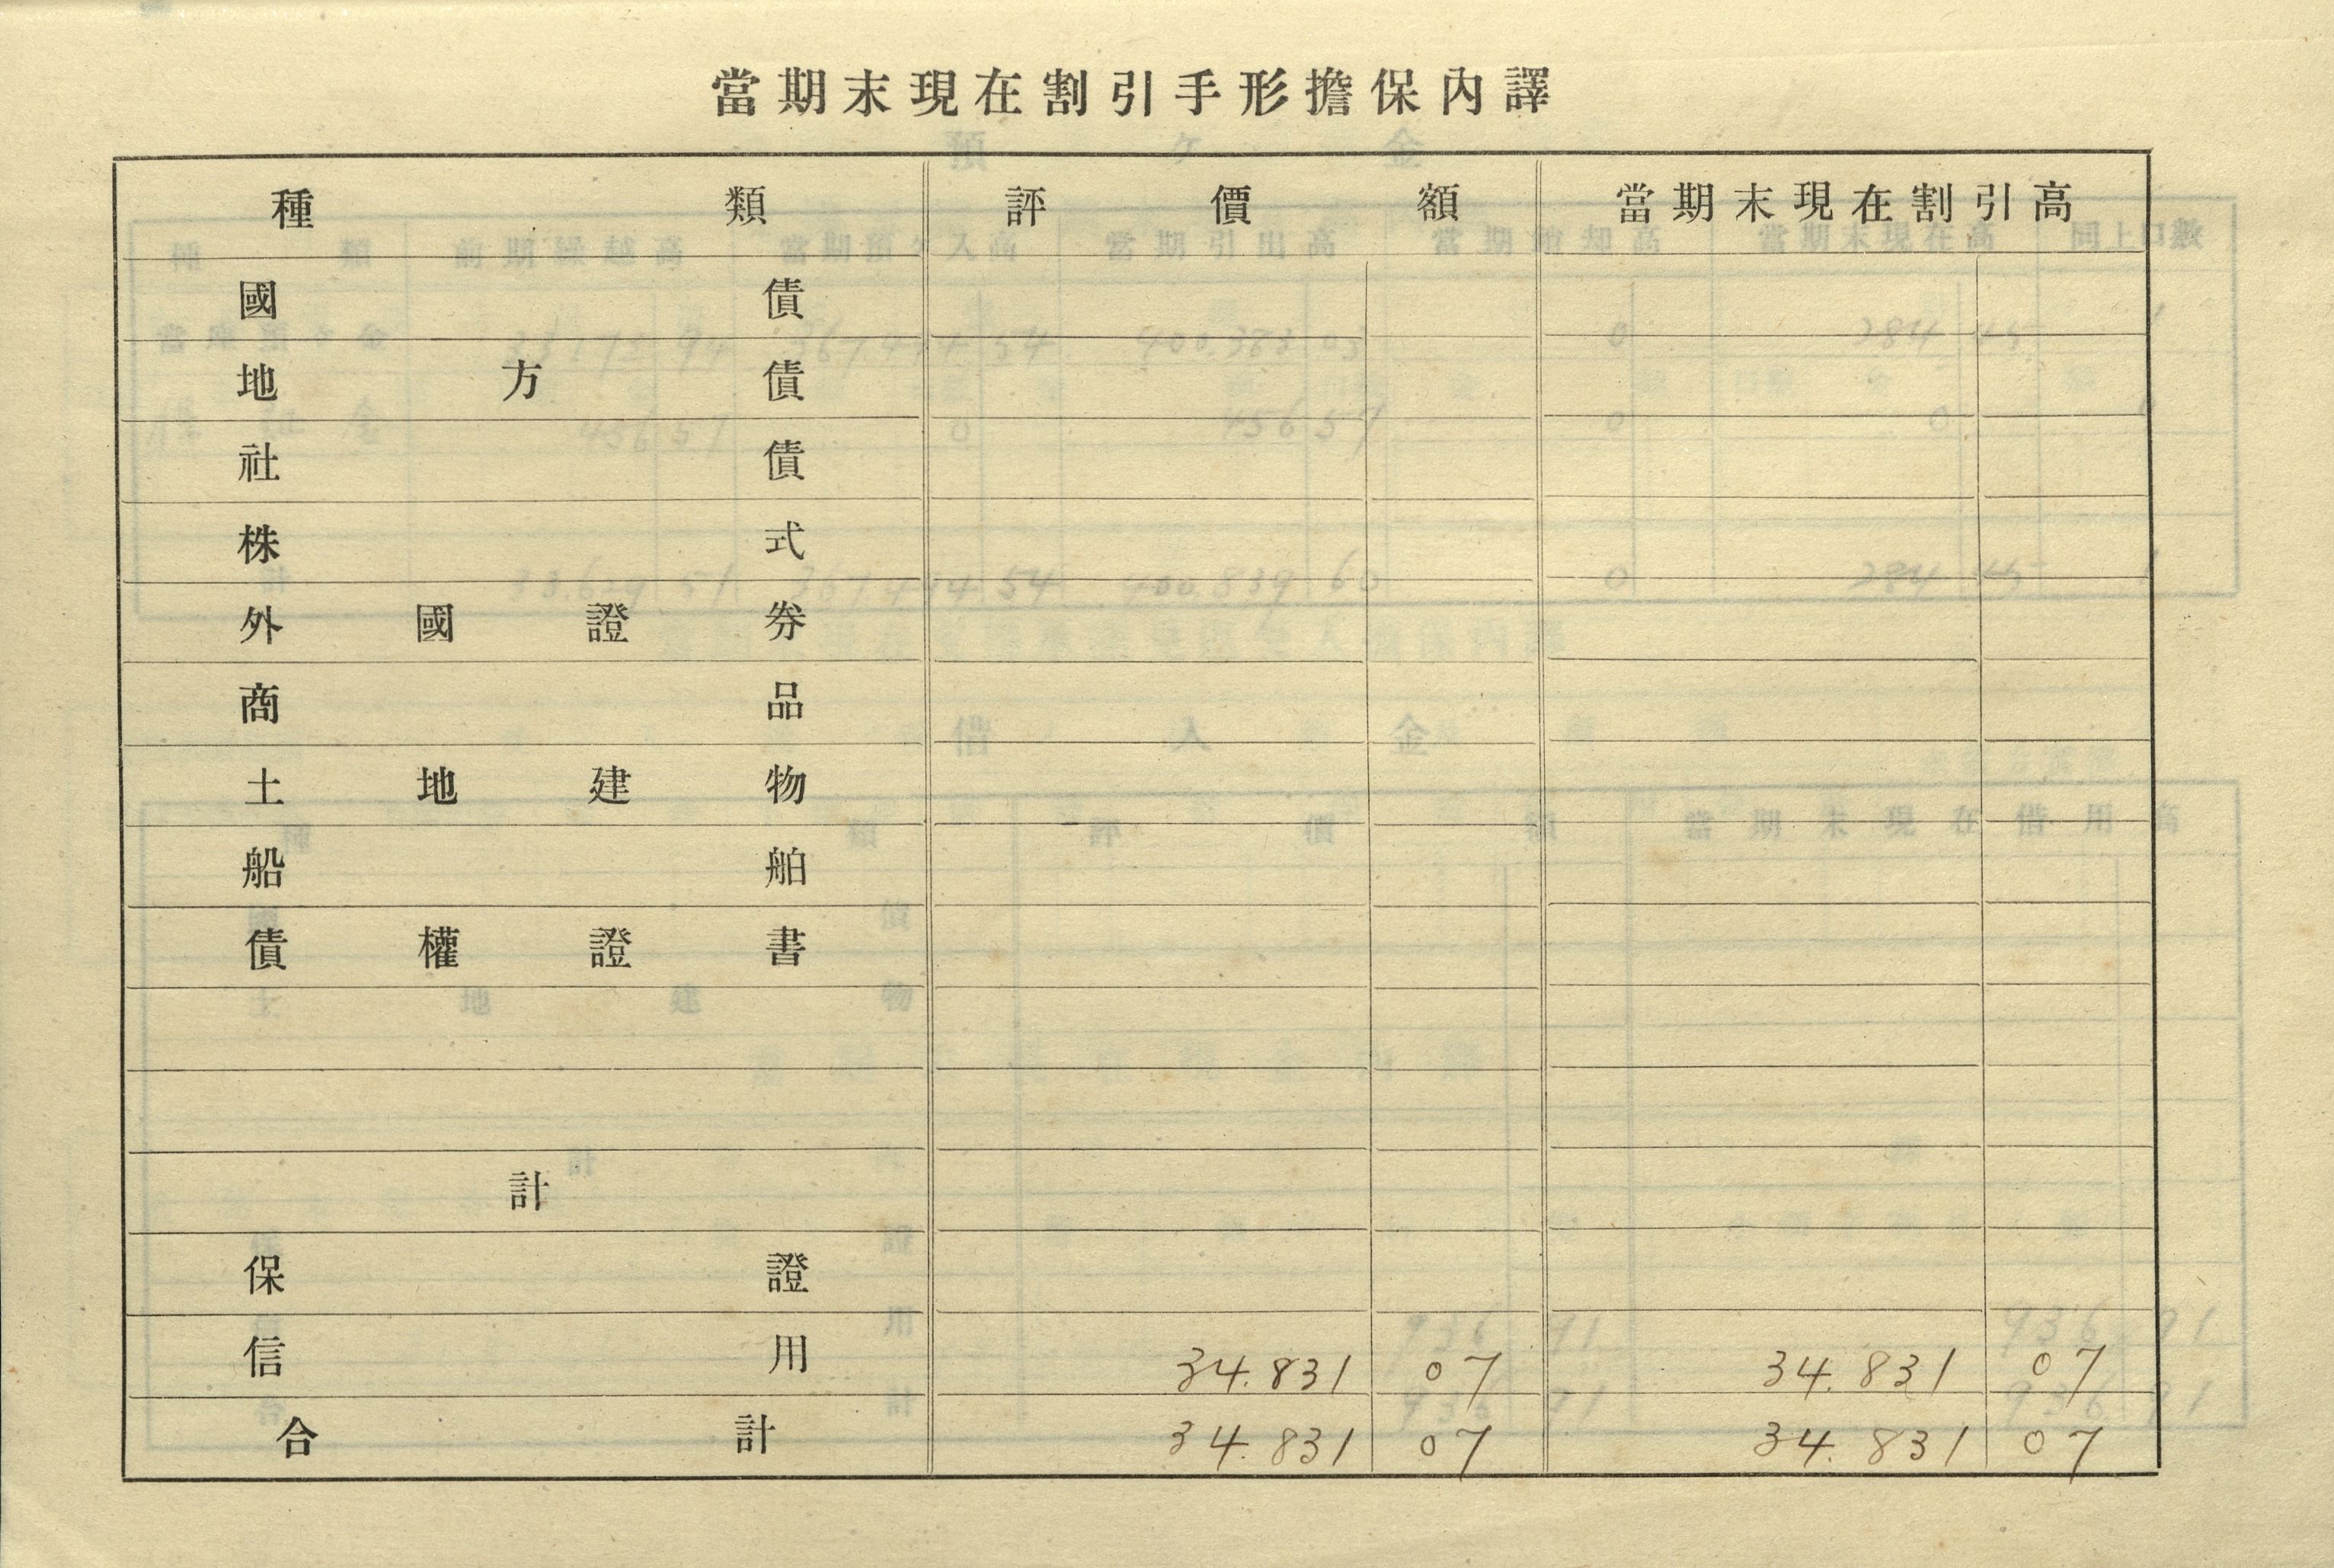 當期末現在割引手形擔保內譯
種類 評價額 當期末現在割引高
國債
地方債
社債
株式
外國證券
商品
土地建物
船舶
債權證書
計
保證
信用 34.831 07 34.831 07
合計 34.831 07 34.831 07